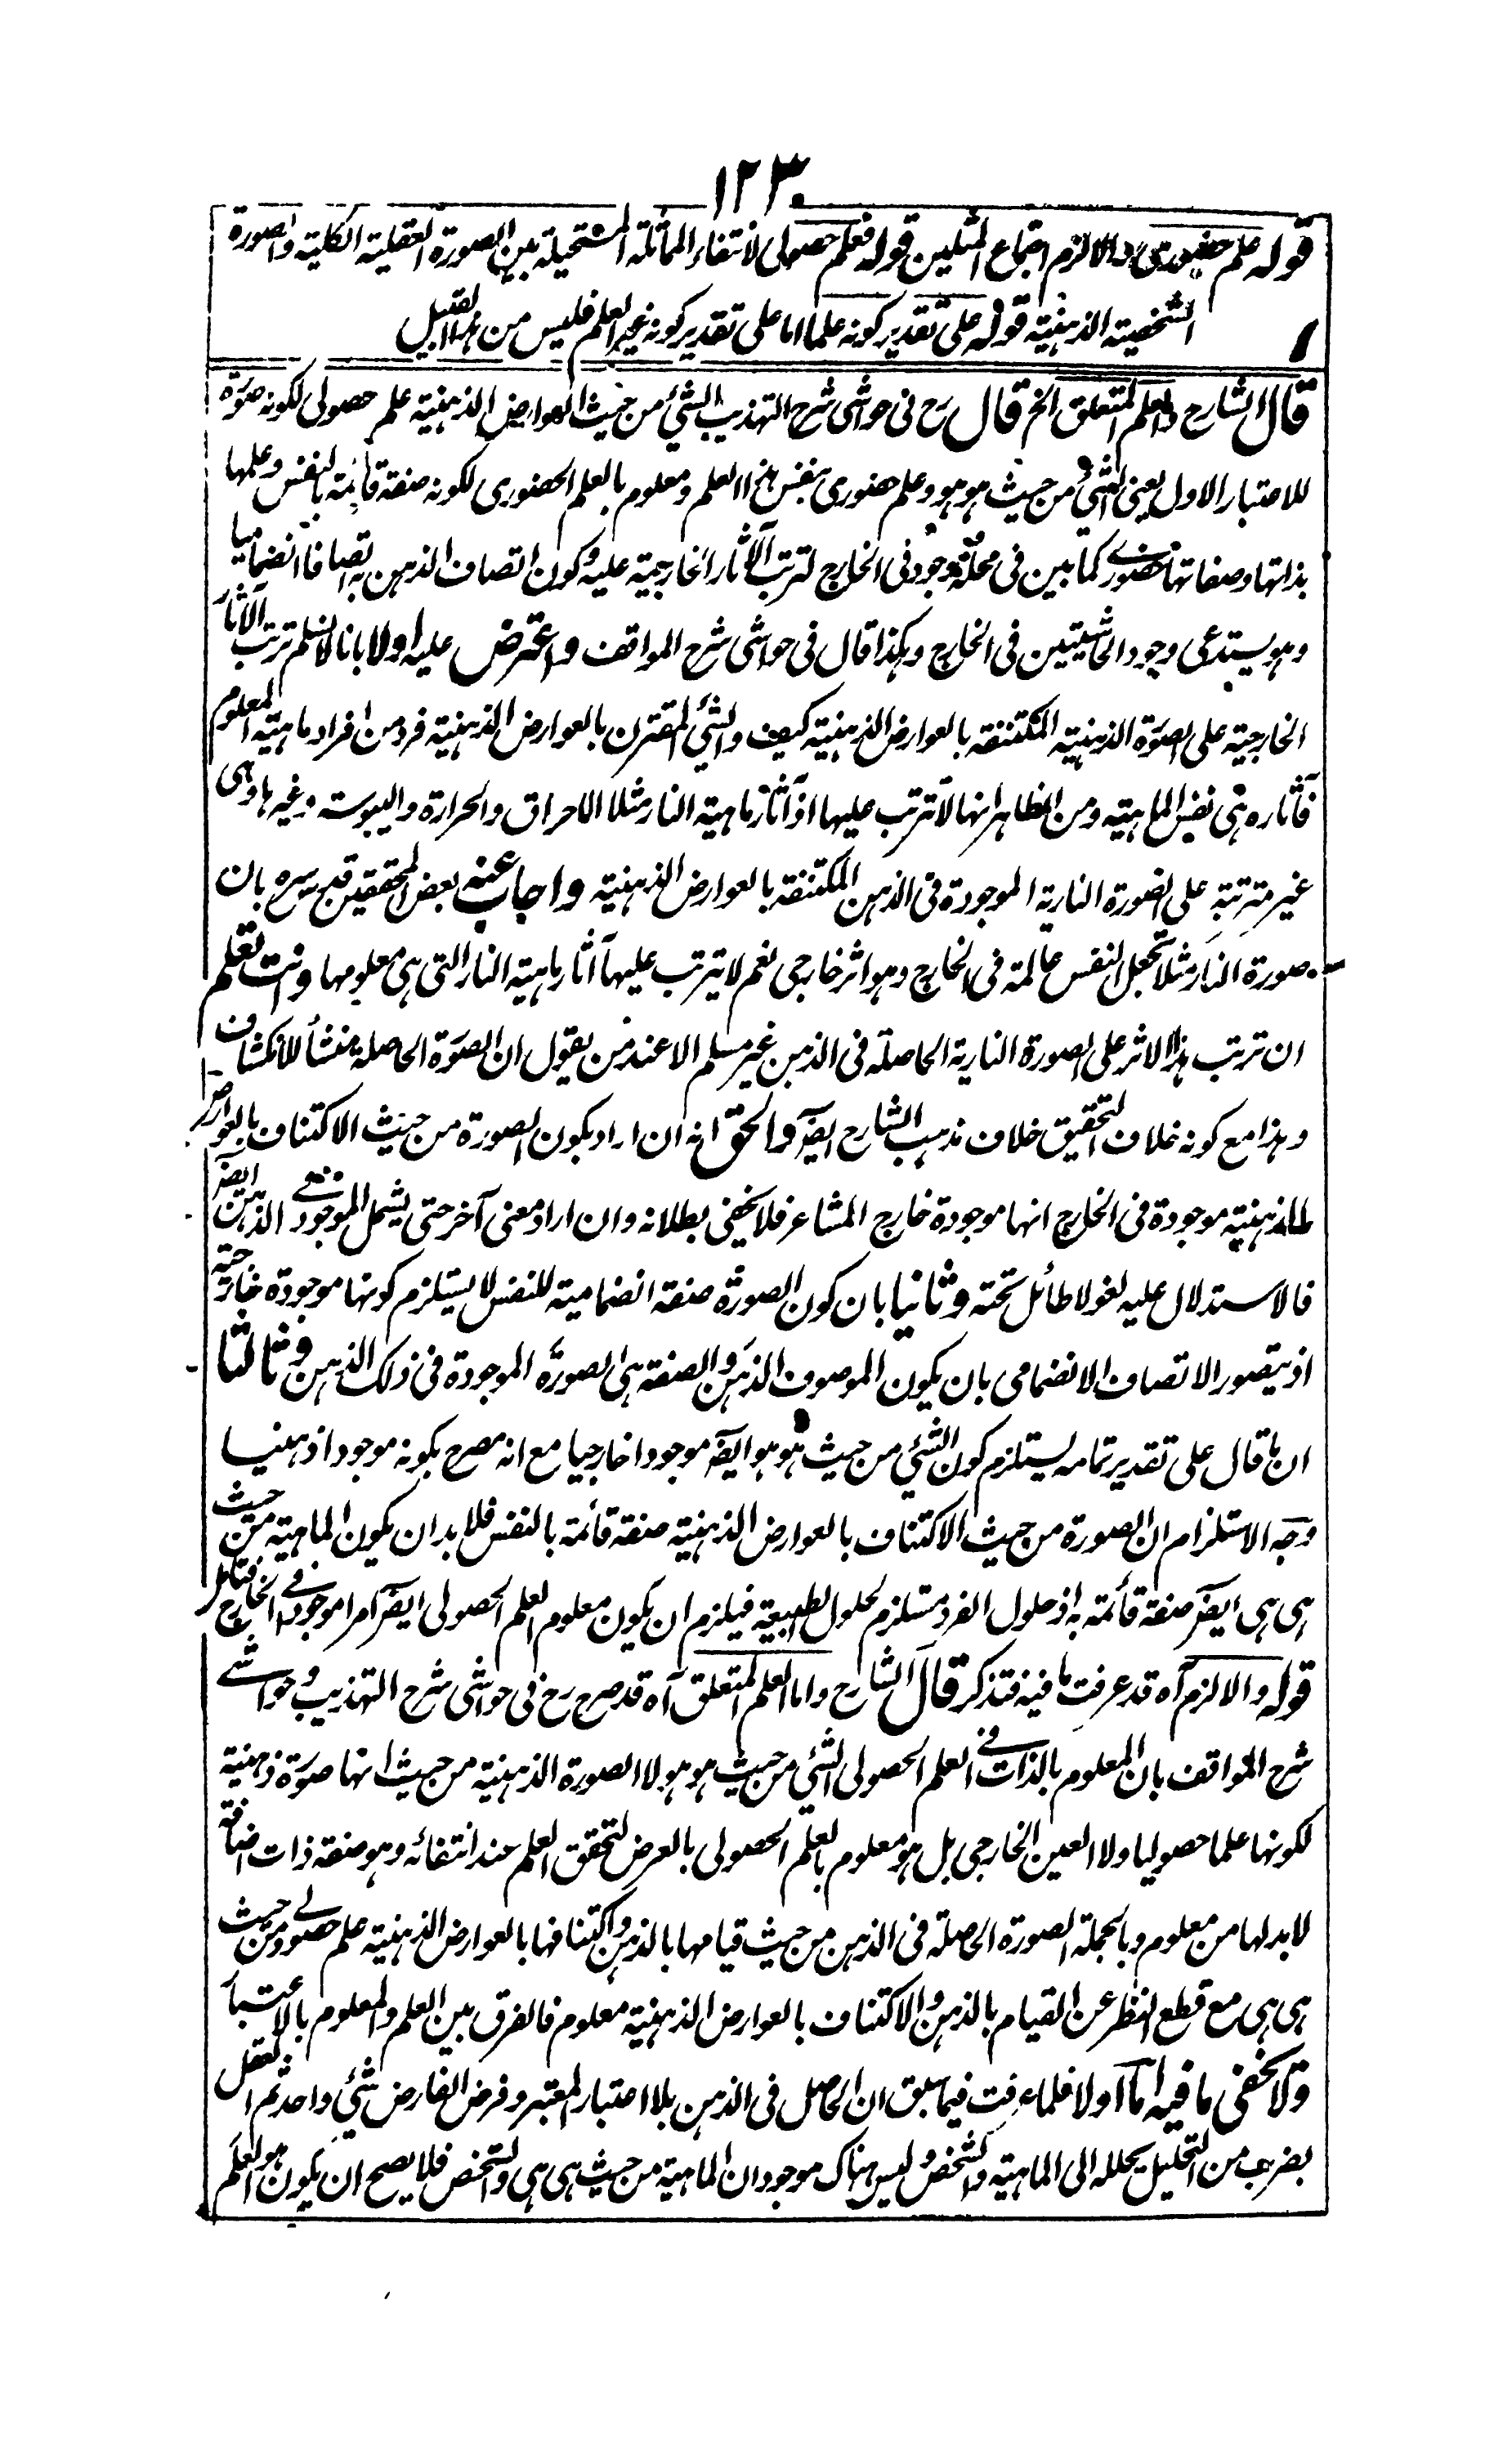 ١٢٣
قوله علم حضوري والا لزم اجتماع المثلين قوله فعلم حصولى لانتفاء المماثلة المستحيلة بين الصورة العقلية الكلية والصورة
الشخصية الذهنية قوله على تقدير كونه علما اما على تقدير كونه غير العلم فليس من هذا القبيل
قال الشارح والعلم المتعلق الخ قال رح فى حواشى شرح التهذيب الشئ من حيث العوارض الذهنية علم حصولى لكونه صورة
للاعتبار الاول يعنى الشئ من حيث هو هو وعلم حضورى بنفس هذا العلم ومعلوم بالعلم الحضورى لكونه صفة قائمة بالنفس وعلمها
بذاتها وصفاتها حضورى كما بين فى محله وموجود فى الخارج لترتب الآثار الخارجية عليه وكون اتصاف الذهن به اتصافا انضماميا
وهو يستدعى وجود الحاشيتين فى الخارج وهكذا قال فى حواشى شرح المواقف واعترض عليه اولا بانا لا نسلم ترتب الآثار
الخارجية على الصورة الذهنية المكتنفة بالعوارض الذهنية كيف والشئ المقترن بالعوارض الذهنية فرد من افراد ماهية المعلوم
فآثاره هى نفس الماهية ومن الظاهر انها لا تترتب عليها اذ آثار ماهية النار مثلا الاحراق والحرارة واليبوست وغيرها وهى
غير مترتبة على الصورة النارية الموجودة فى الذهن المكتنفة بالعوارض الذهنية واجاب عنه بعض المحققين قدس سره بان
صورة النار مثلا تجعل النفس عالمة فى الخارج وهو اثر خارجى نعم لا يترتب عليها آثار ماهية النار التى هى معلومها وانت تعلم
ان ترتب هذا الاثر على الصورة النارية الحاصلة فى الذهن غير مسلم الا عند من يقول ان الصورة الحاصلة منشأ للانكشاف
وهذا مع كونه خلاف التحقيق خلاف مذهب الشارح ايضا والحق انه ان اراد بكون الصورة من حيث الاكتناف بالعوارض
الذهنية موجودة فى الخارج انها موجودة خارج المشاعر فلا يخفى بطلانه وان اراد معنى آخر حتى يشمل الموجود فى الذهن ايضا
فالاستدلال عليه لغو لا طائل تحته وثانيا بان كون الصورة صفة انضمامية للنفس لا يستلزم كونها موجودة خارجية
اذ يتصور الاتصاف الانضمامى بان يكون الموصوف الذهن والصفة هى الصورة الموجودة فى ذلك الذهن وثالثا
ان ما قال على تقدير تمامه يستلزم كون الشئ من حيث هو هو ايضا موجودا خارجيا مع انه مصرح بكونه موجودا ذهنيا
وجه الاستلزام ان الصورة من حيث الاكتناف بالعوارض الذهنية صفة قائمة بالنفس فلا بد ان يكون الماهية من حيث
هى هى ايضا صفة قائمة به اذ حلول الفرد مستلزم لحلول الطبيعة فيلزم ان يكون معلوم العلم الحصولى ايضا امرا موجودا فى الخارج فتامل
قوله والا لزم آه قد عرفت ما فيه فتذكر قال الشارح واما العلم المتعلق آه قد صرح رح فى حواشى شرح التهذيب وحواشى
شرح المواقف بان المعلوم بالذات فى العلم الحصولى الشئ من حيث هو هو لا الصورة الذهنية من حيث انها صورة ذهنية
لكونها علما حصوليا ولا العين الخارجى بل هو معلوم بالعلم الحصولى بالعرض لتحقق العلم عند انتفائه وهو صفة ذات اضافة
لا بد لها من معلوم وبالجملة الصورة الحاصلة فى الذهن من حيث قيامها بالذهن واكتنافها بالعوارض الذهنية علم حصولى ومن حيث
هى هى مع قطع النظر عن القيام بالذهن والاكتناف بالعوارض الذهنية معلوم فالفرق بين العلم والمعلوم بالاعتبار
ولا يخفى ما فيه اما اولا فلما عرفت فيما سبق ان الحاصل فى الذهن بلا اعتبار المعتبر وفرض الفارض شئ واحد ثم العقل
بضرب من التحليل يحلله الى الماهية والتشخص وليس هناك موجودان الماهية من حيث هى هى والتشخص فلا يصح ان يكون هو العلم